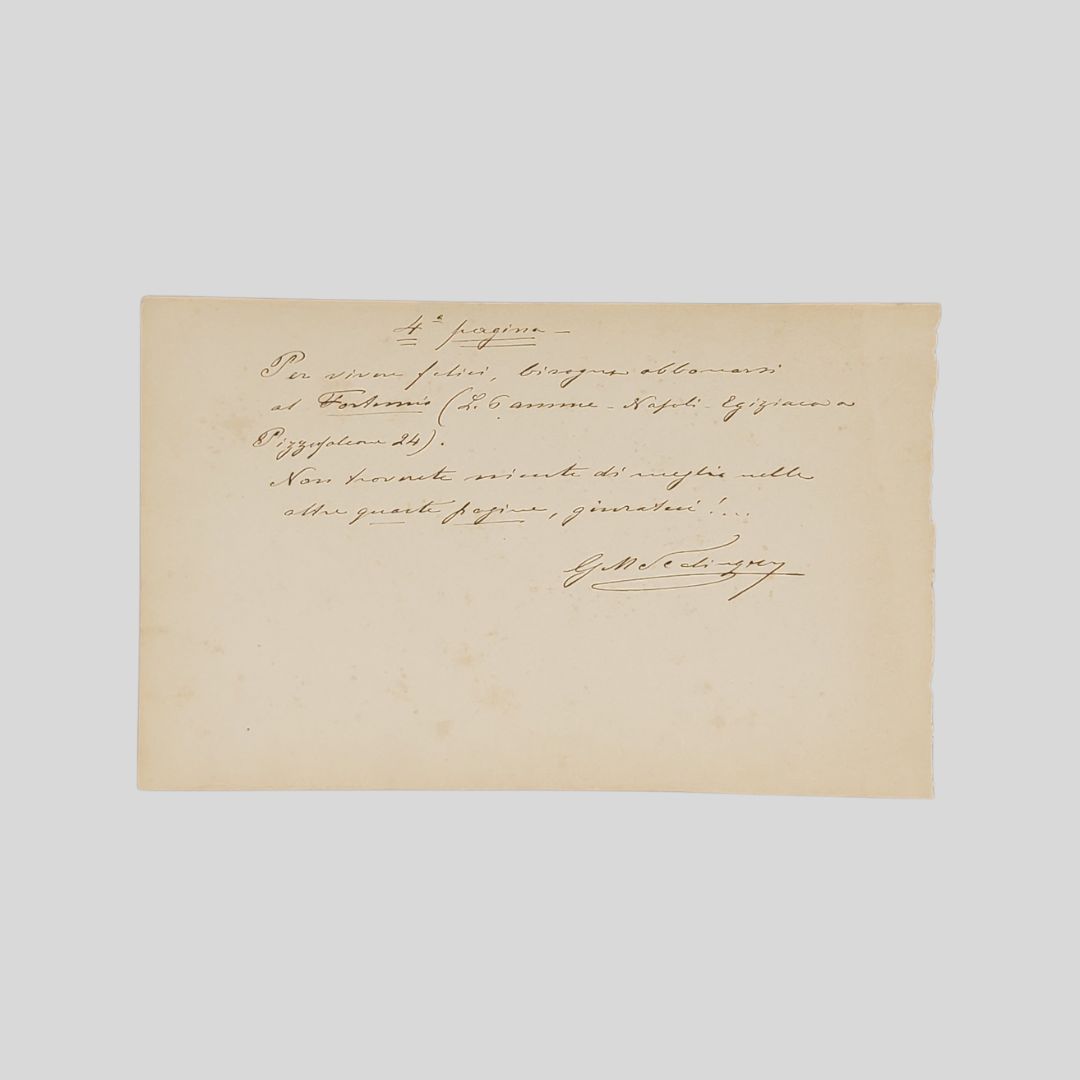 4ª pagina –
Per vivere felici, bisogna abbonarsi
al Fortunio (L. Pamme – Napoli – Egiziaca a
Pizzofalcone 24).
Non troverete niente di meglio nelle
altre quarte pagine, giurateci!...
G M Scalingery